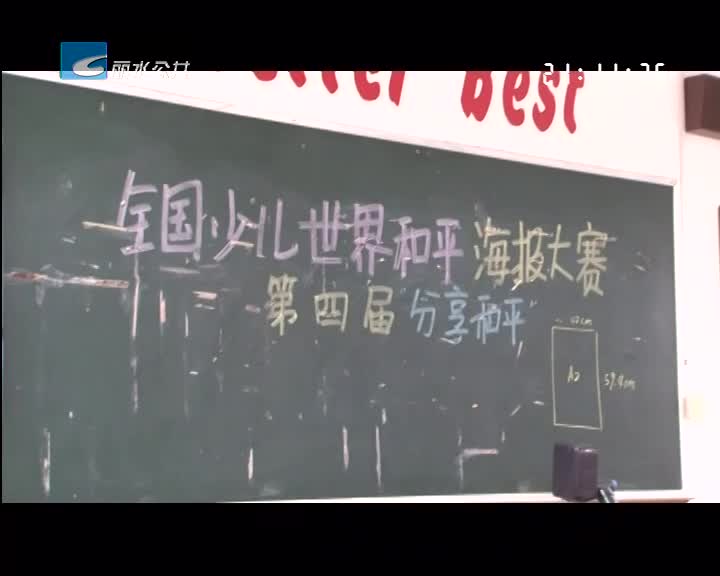 丽水公共
21:11:35
Best
全国少儿世界和平海报大赛
第四届"分享和平"
42cm
A2
59.4cm